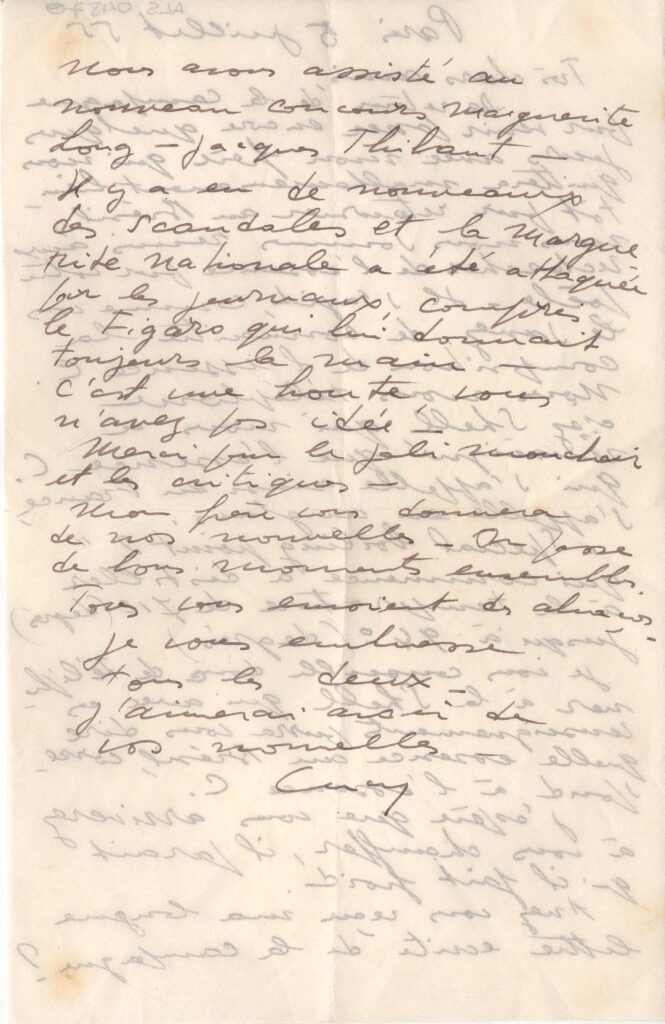 Nous avons assisté au
nouveau concours Marguerite
Long – Jacques Thibaut –
Il y a eu de nouveaux
des scandales et la Margue
rite nationale a été attaquée
par les journaux, compris
le Figaro qui lui donnait
toujours la main –
C'est une honte vous
n'avez pas idée –
Merci pour le joli mouchoir
et les critiques –
Mon père vous donnera
de nos nouvelles – On passe
de bons moments ensembles.
Tous vous envoient des abrazos –
Je vous embrasse
tous les deux –
J'aimerai avoir de
vos nouvelles –